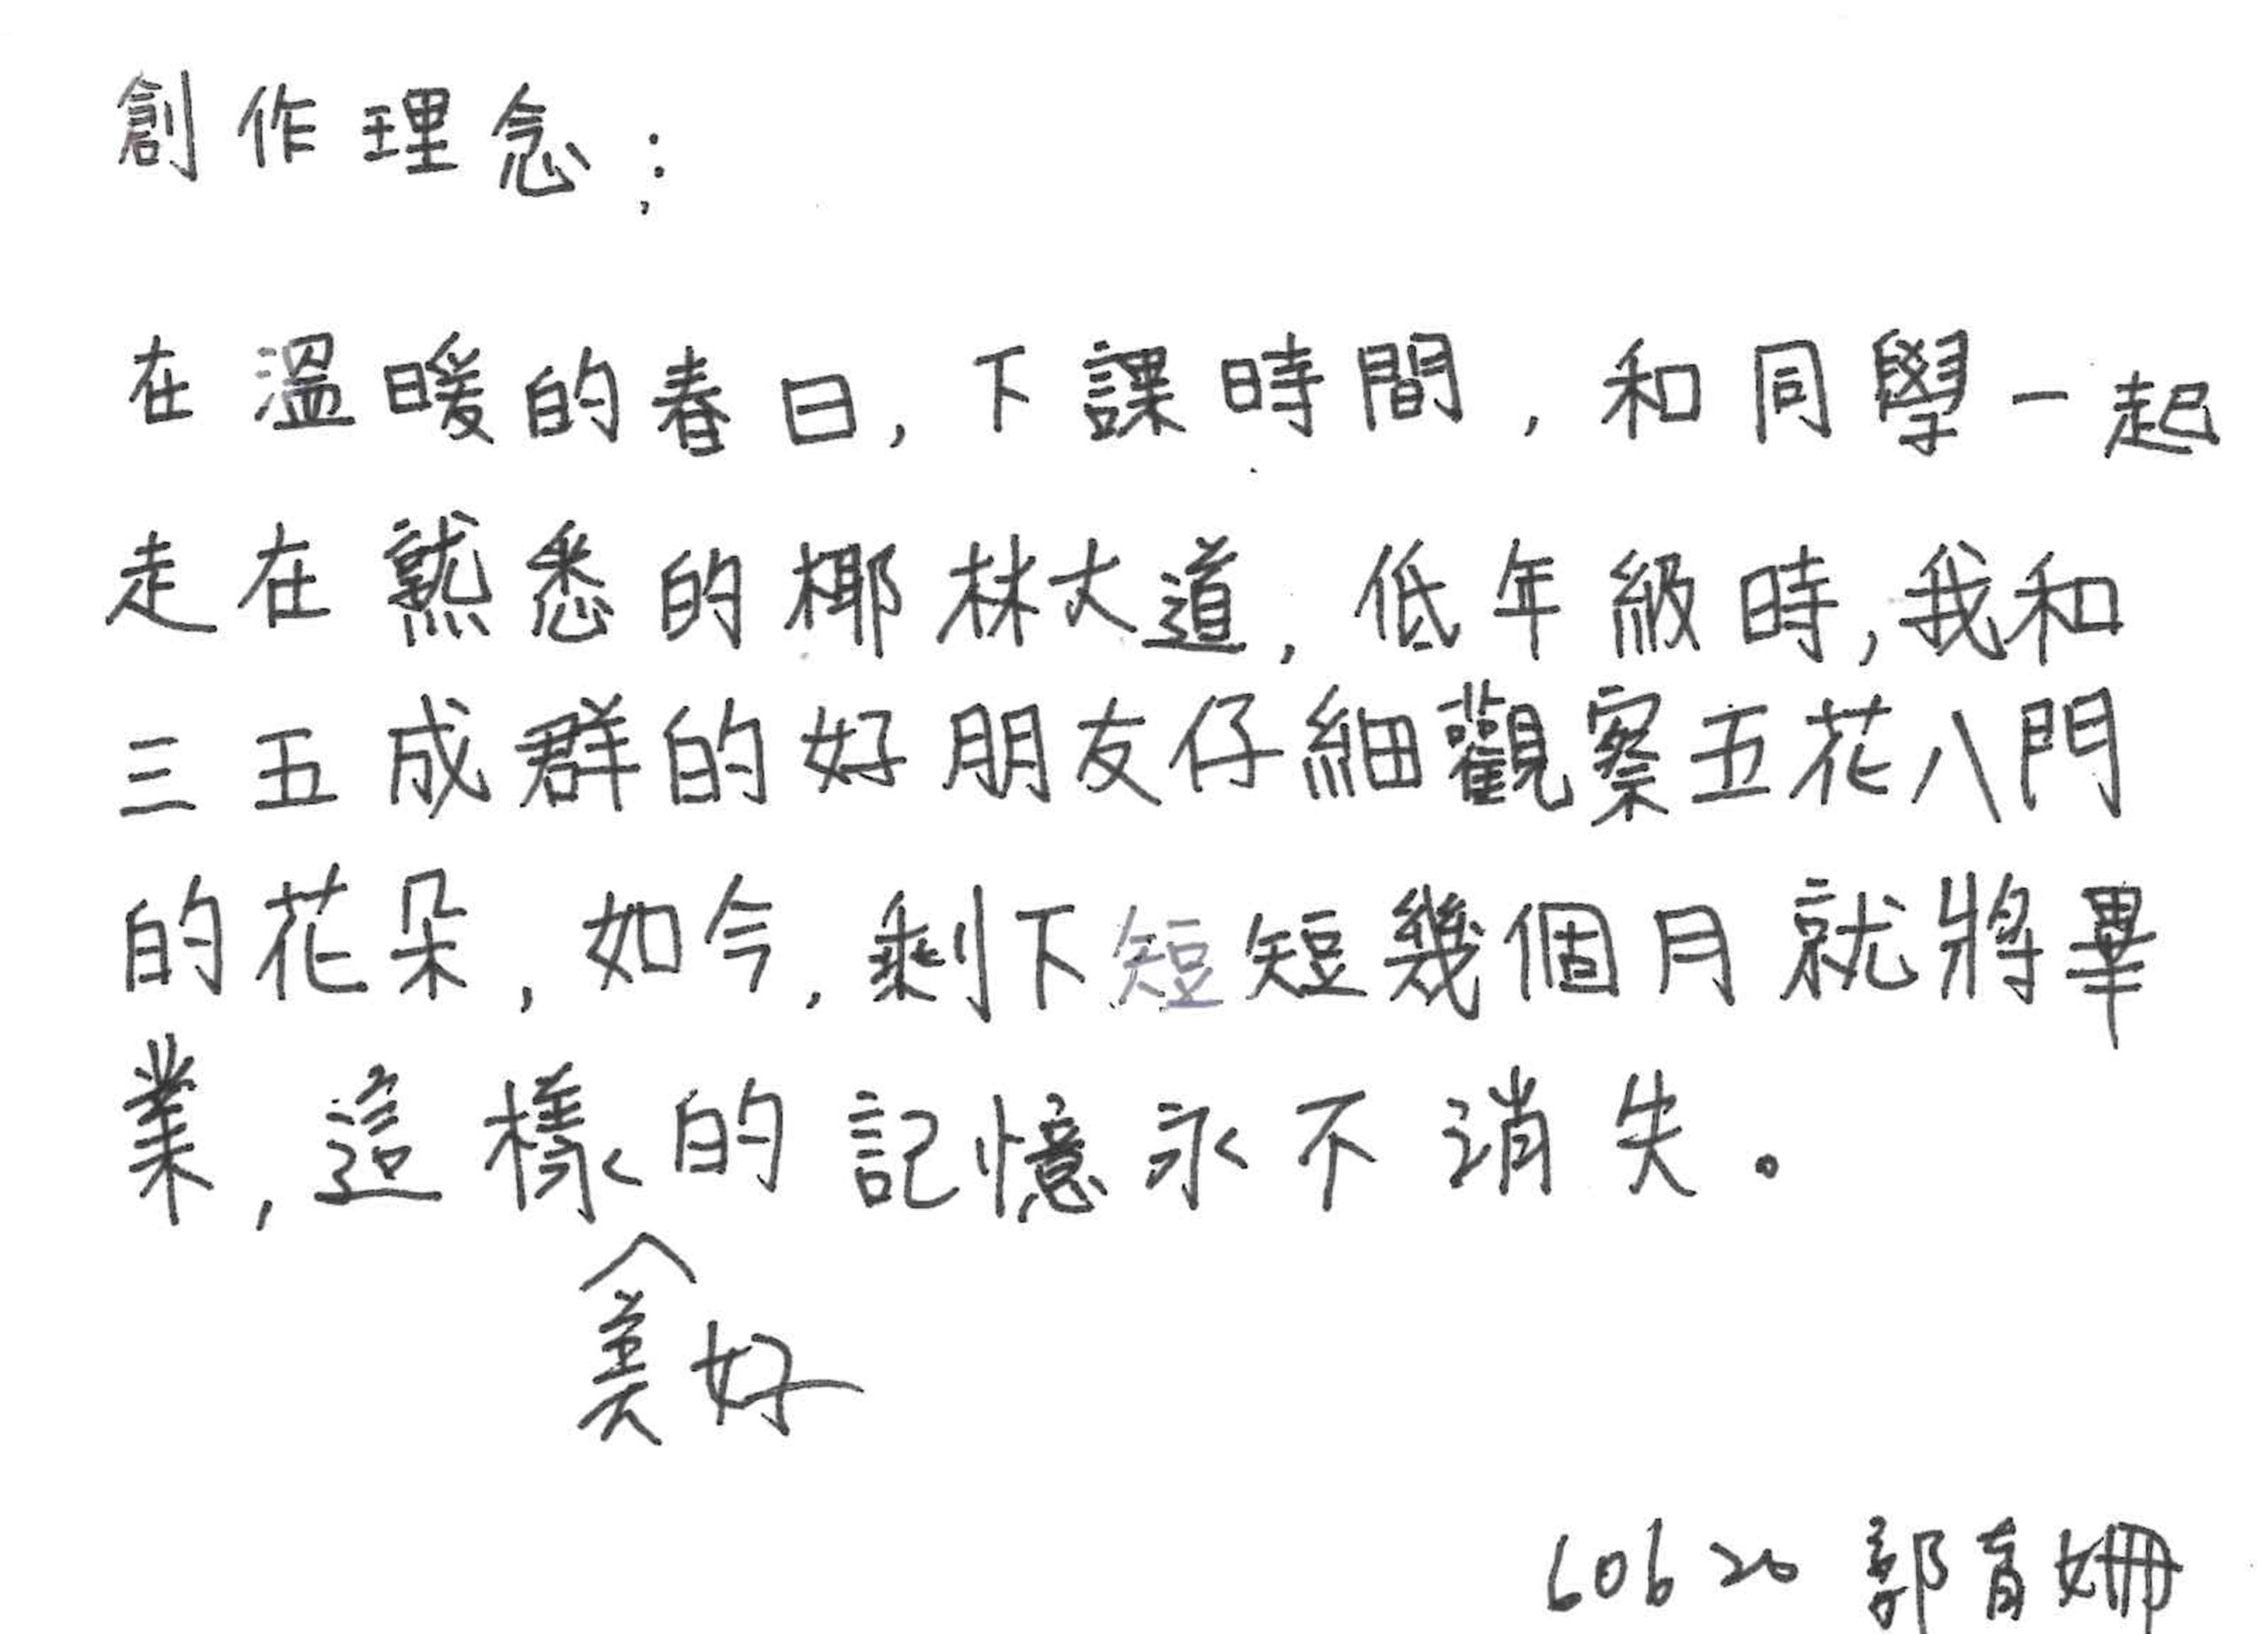 創作理念：
在溫暖的春日,下課時間,和同學一起
走在熟悉的椰林大道,低年級時,我和
三五成群的好朋友仔細觀察五花八門
的花朵,如今,剩下短短幾個月就將畢
業,這樣的記憶永不消失。
美好
60620 郭育姍